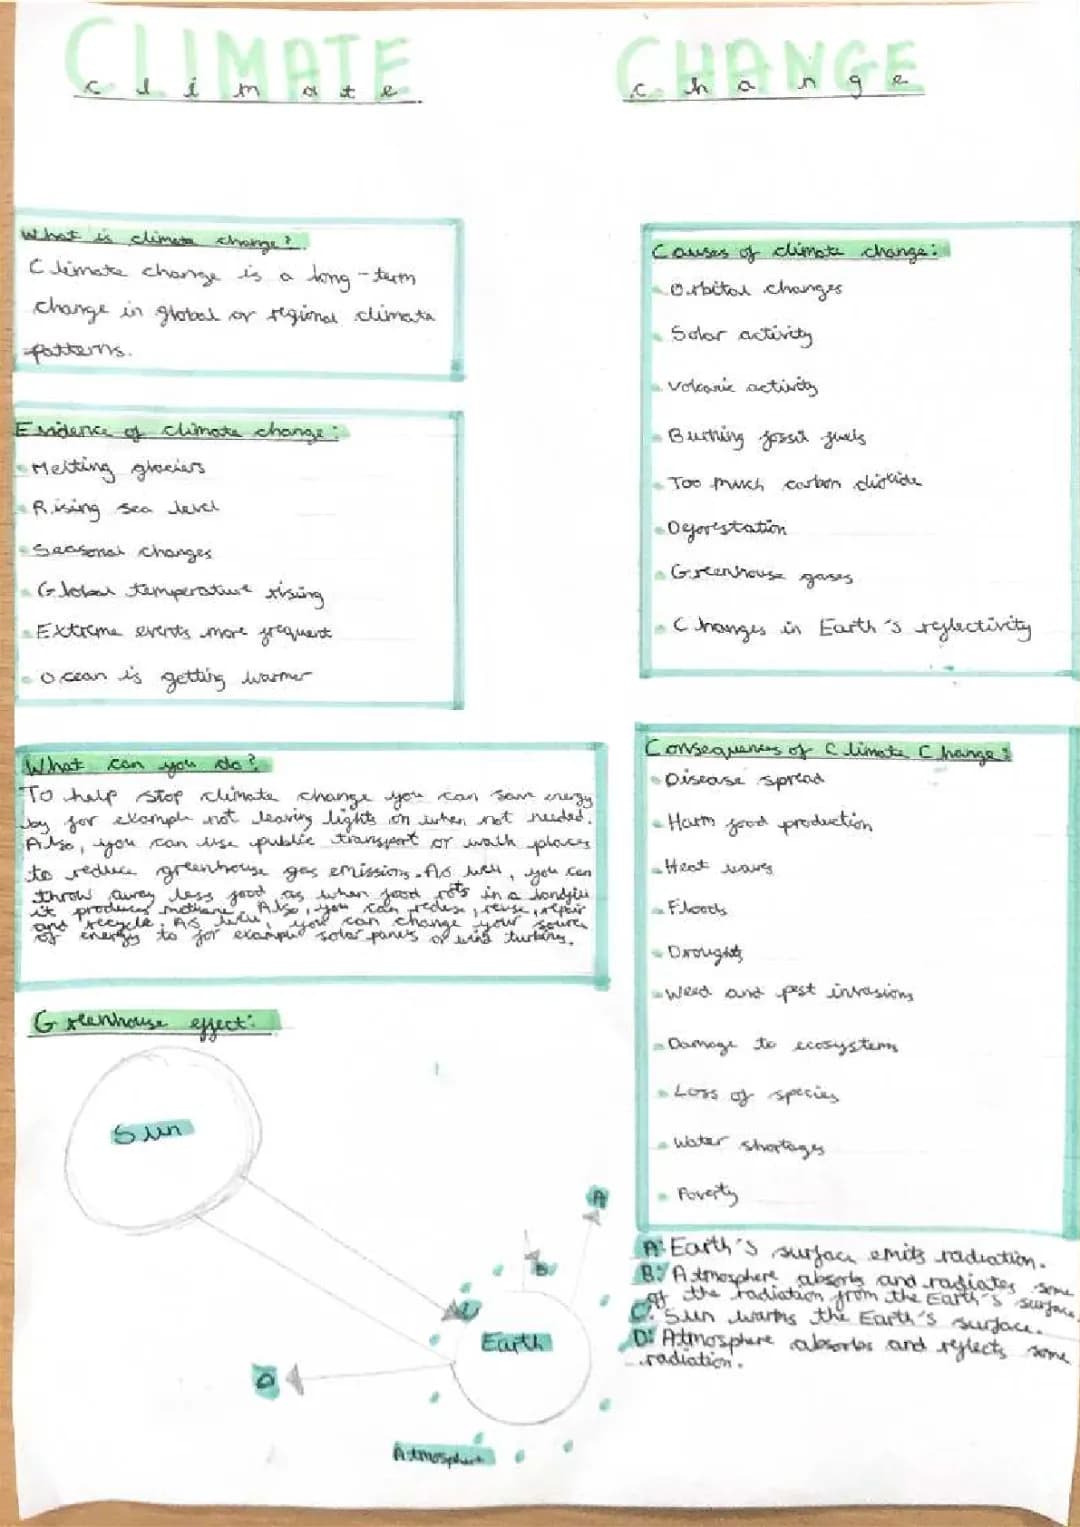 CLIMATE CHANGE
climate change
What is climate change?
Climate change is a long-term
change in global or regional climate
patterns.
Evidence of climate change:
Melting glaciers
Rising sea level
Seasonal changes
Global temperature rising
Extreme events more frequent
Ocean is getting warmer
What can you do?
To help stop climate change you can save energy
by for example not leaving lights on when not needed.
Also, you can use public transport or walk places
to reduce greenhouse gas emissions. As well, you can
throw away less food as when food rots in a landfill
it produces methane. Also, you can reduse, reuse, repair
and recycle. As well, you can change your source
of energy to for example solar panels or wind turbines.
Causes of climate change:
Orbital changes
Solar activity
Volcanic activity
Burning fossil fuels
Too much carbon dioxide
Deforestation
Greenhouse gases
Changes in Earth's reflectivity
Consequences of Climate Change:
Disease spread
Harm food production
Heat waves
Floods
Droughts
Weed and pest invasions
Damage to ecosystems
Loss of species
Water shortages
Poverty
Greenhouse effect:
Sun
A
B
C
Earth
D
Atmosphere
A: Earth's surface emits radiation.
B: Atmosphere absorbs and radiates some
of the radiation from the Earth's surface.
C: Sun warms the Earth's surface.
D: Atmosphere absorbs and reflects some
radiation.